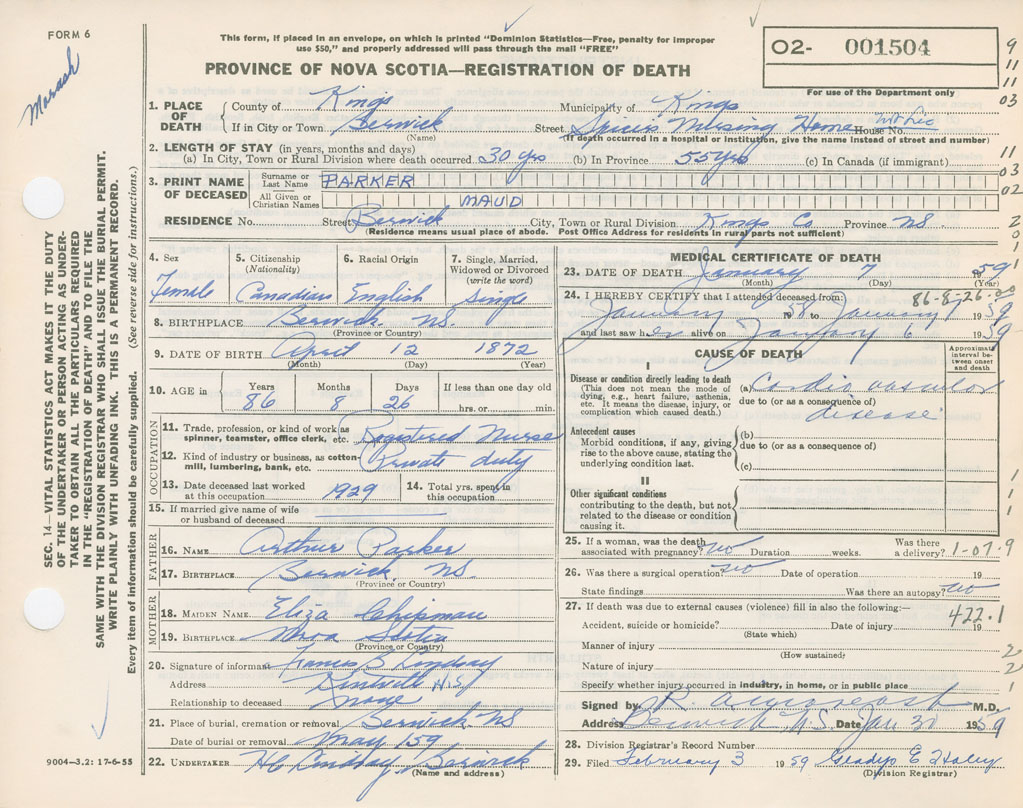 FORM 6
This form, if placed in an envelope, on which is printed "Dominion Statistics—Free, penalty for improper
use $50," and properly addressed will pass through the mail "FREE"
PROVINCE OF NOVA SCOTIA—REGISTRATION OF DEATH
O2- 001504
For use of the Department only
9
11
11
03
11
03
02
2
0
1. PLACE OF DEATH
County of Kings Municipality of Kings
If in City or Town Berwick Street Nursing Home House No.
(Name) (If death occurred in a hospital or institution, give the name instead of street and number)
2. LENGTH OF STAY (in years, months and days)
(a) In City, Town or Rural Division where death occurred 30 yrs (b) In Province 55 yrs (c) In Canada (if immigrant)
3. PRINT NAME OF DECEASED
Surname or Last Name PARKER
All Given or Christian Names MAUD
RESIDENCE No. Street Berwick City, Town or Rural Division Kings Co Province NS.
(Residence means usual place of abode. Post Office Address for residents in rural parts not sufficient)
4. Sex
Female
5. Citizenship
(Nationality)
Canadian
6. Racial Origin
English
7. Single, Married,
Widowed or Divorced
(write the word)
Single
8. BIRTHPLACE Berwick NS.
(Province or Country)
9. DATE OF BIRTH April 12 1872
(Month) (Day) (Year)
10. AGE in
Years Months Days If less than one day old
86 8 26 hrs. or min.
OCCUPATION
11. Trade, profession, or kind of work as
spinner, teamster, office clerk, etc. Registered Nurse
12. Kind of industry or business, as cotton-
mill, lumbering, bank, etc. Private duty
13. Date deceased last worked
at this occupation 1929
14. Total yrs. spent in
this occupation
15. If married give name of wife
or husband of deceased
FATHER
16. NAME Arthur Parker
17. BIRTHPLACE Berwick, NS.
(Province or Country)
MOTHER
18. MAIDEN NAME Eliza Chipman
19. BIRTHPLACE Nova Scotia
(Province or Country)
20. Signature of informant Frances B Lindsay
Address Kentville N.S.
Relationship to deceased none
21. Place of burial, cremation or removal Berwick NS
Date of burial or removal May 1 59
22. UNDERTAKER HC Lindsay, Berwick
(Name and address)
MEDICAL CERTIFICATE OF DEATH
23. DATE OF DEATH January 7 1959
(Month) (Day) (Year)
86-8-26-
24. I HEREBY CERTIFY that I attended deceased from:
January 1958 to January 7 1959
and last saw her alive on January 6 1959
CAUSE OF DEATH
Approximate
interval be-
tween onset
and death
I
Disease or condition directly leading to death
(This does not mean the mode of
dying, e.g., heart failure, asthenia,
etc. It means the disease, injury, or
complication which caused death.)
(a) Cardio vascular
due to (or as a consequence of)
disease.
Antecedent causes
Morbid conditions, if any, giving
rise to the above cause, stating the
underlying condition last.
(b)
due to (or as a consequence of)
(c)
II
Other significant conditions
contributing to the death, but not
related to the disease or condition
causing it.
25. If a woman, was the death
associated with pregnancy? No Duration weeks. Was there
a delivery? 1-07.9
26. Was there a surgical operation? No Date of operation 19
State findings Was there an autopsy? No
27. If death was due to external causes (violence) fill in also the following:—
422.1
Accident, suicide or homicide? Date of injury 19
(State which)
Manner of injury
(How sustained)
Nature of injury
Specify whether injury occurred in industry, in home, or in public place
Signed by R. M.D.
Address Berwick N.S. Date Jan 30 1959
28. Division Registrar's Record Number
29. Filed February 3 1959 Gladys E
(Division Registrar)
SEC. 14—VITAL STATISTICS ACT MAKES IT THE DUTY
OF THE UNDERTAKER OR PERSON ACTING AS UNDER-
TAKER TO OBTAIN ALL THE PARTICULARS REQUIRED
IN THE "REGISTRATION OF DEATH" AND TO FILE THE
SAME WITH THE DIVISION REGISTRAR WHO SHALL ISSUE THE BURIAL PERMIT.
WRITE PLAINLY WITH UNFADING INK. THIS IS A PERMANENT RECORD.
Every item of information should be carefully supplied. (See reverse side for instructions.)
9004—3.2: 17-6-55